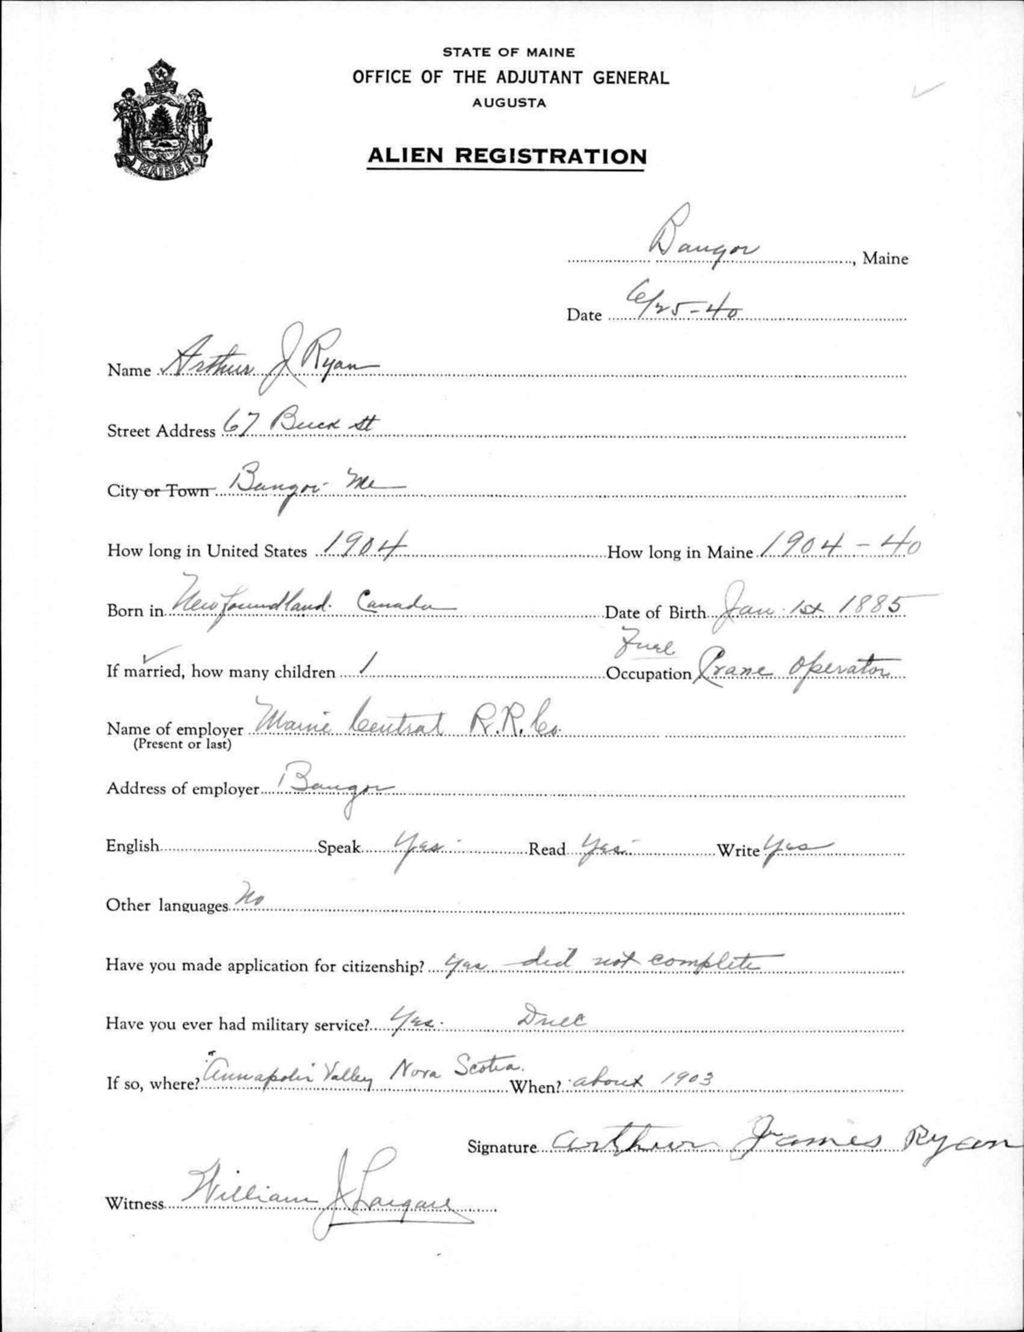 STATE OF MAINE
OFFICE OF THE ADJUTANT GENERAL
AUGUSTA
ALIEN REGISTRATION
MAINE
Bangor, Maine
Date 6/25-40
Name Arthur J Ryan
Street Address 67 Buck st
City or Town Bangor Me
How long in United States 1904 How long in Maine 1904-40
Born in Newfoundland Canada Date of Birth Jan 1st 1885
Fuel
If married, how many children 1 Occupation Crane Operator
Name of employer Maine Central R.R. Co.
(Present or last)
Address of employer Bangor
English Speak Yes Read Yes Write Yes
Other languages No
Have you made application for citizenship? Yes did not complete
Have you ever had military service? Yes. Drill
If so, where? "Annapolis" Valley Nova Scotia. When? about 1903
Signature Arthur James Ryan
Witness William J